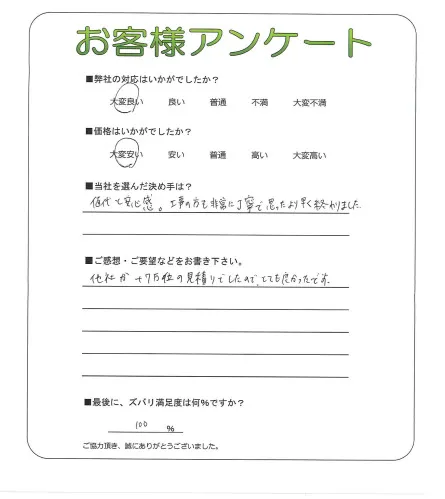 お客様アンケート
■弊社の対応はいかがでしたか？
大変良い 良い 普通 不満 大変不満
■価格はいかがでしたか？
大変安い 安い 普通 高い 大変高い
■当社を選んだ決め手は？
値段と安心感。工事の方も非常に丁寧で思ったより早く終わりました
■ご感想・ご要望などをお書き下さい。
他社が+7万位の見積りでしたので、とても良かったです。
■最後に、ズバリ満足度は何%ですか？
100 %
ご協力頂き、誠にありがとうございました。